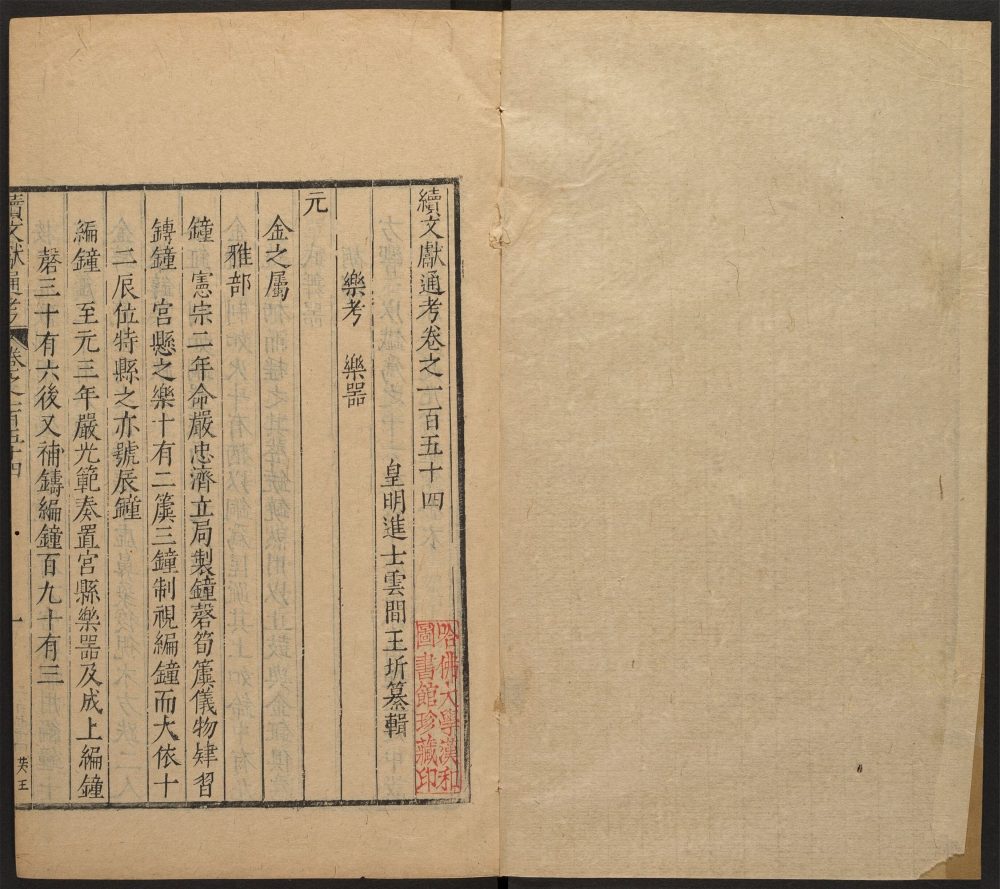 續文獻通考卷之一百五十四
皇明進士雲間王圻纂輯
樂考 樂器
元
金之屬
雅部
鐘 憲宗二年命嚴忠濟立局製鐘磬筍簴儀物肄習
鎛鐘 宮懸之樂十有二簴三鐘制視編鐘而大依十
二辰位特縣之亦號辰鐘
編鐘 至元三年嚴光範奏置宮縣樂器及成上編鐘
磬三十有六後又補鑄編鐘百九十有三
續文獻通考 卷之一百五十四 一
哈佛大學漢和
圖書館珍藏印